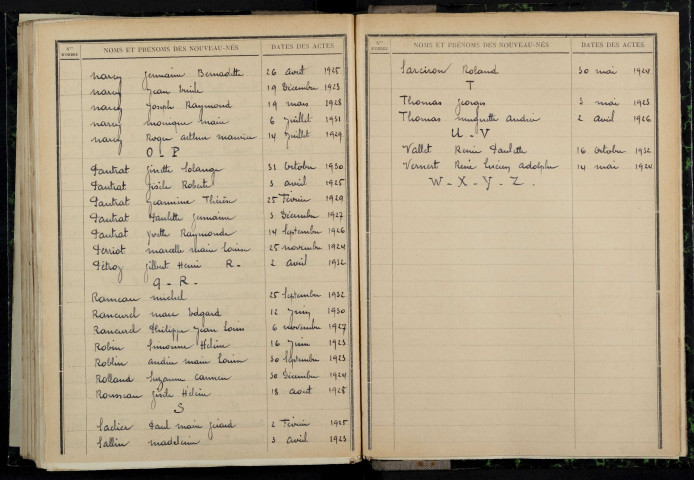 Nos D'ORDRE NOMS ET PRÉNOMS DES NOUVEAU-NÉS DATES DES ACTES
Narcy Germaine Bernadette 26 avril 1925
Narcy Jean Emile 19 Décembre 1923
Narcy Joseph Raymond 19 mars 1928
Narcy Monique Marie 6 Juillet 1931
Narcy Roger Arthur Maurice 14 Juillet 1929
O - P
Pautrat Ginette Solange 31 Octobre 1930
Pautrat Gisèle Roberte 3 avril 1925
Pautrat Jeannine Thérèse 25 Février 1929
Pautrat Paulette Germaine 3 Décembre 1927
Pautrat Yvette Raymonde 14 Septembre 1926
Perriot Marcelle Marie Louise 25 novembre 1924
Pétroz Gilbert Henri R- 2 avril 1932
Q - R-
Rameau Michel 25 Septembre 1932
Rancurel Marc Edgard 12 Juin 1930
Rancurel Philippe Jean Louis 6 novembre 1927
Robin Simonne Hélène 16 Juin 1923
Roblin Andrée Marie Louise 30 Septembre 1923
Rolland Suzanne Carmen 30 Décembre 1924
Rousseau Gisèle Hélène 18 août 1928
S
Sadier Paul Marie Gérard 2 Février 1925
Sallin Madeleine 3 avril 1923
Nos D'ORDRE NOMS ET PRÉNOMS DES NOUVEAU-NÉS DATES DES ACTES
Sarciron Roland 30 mai 1924
T
Thomas Georges 3 mai 1923
Thomas Muguette Andrée 2 avril 1926
U - V
Vallet Renée Paulette 16 octobre 1932
Vernert René Lucien Adolphe 14 mai 1924
W - X - Y - Z .